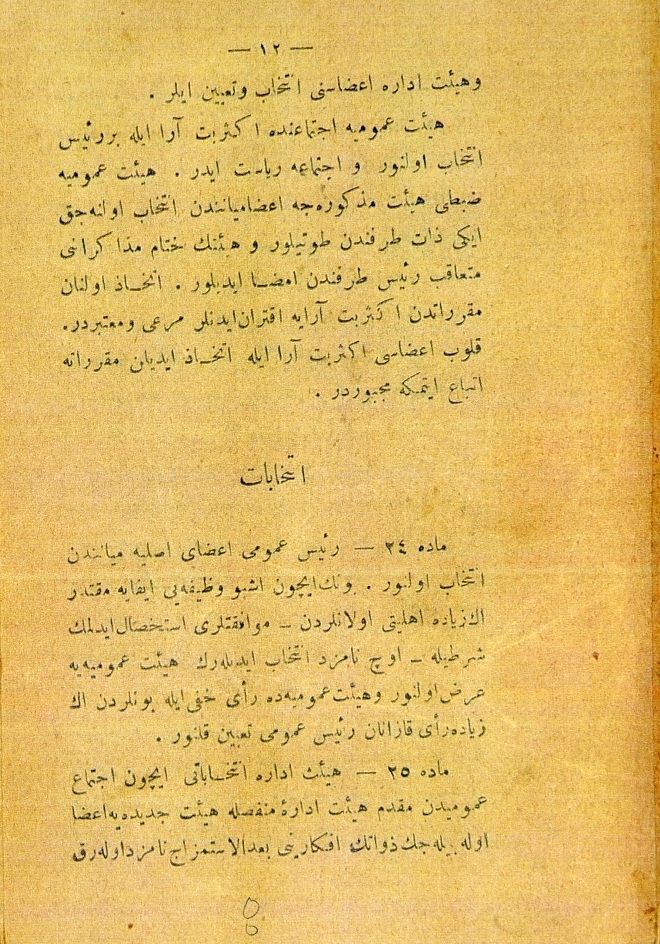 — ١٢ —
وهیئت اداره اعضاسنی انتخاب وتعیین ایلر .
هیئت عمومیه اجتماعنده اکثریت آرا ایله بررئیس
انتخاب اولنور و اجتماعه ریاست ایدر . هیئت عمومیه
ضبطی هیئت مذکوره‌جه اعضامیانندن انتخاب اولنه‌جق
ایکی ذات طرفندن طوتیلور و هیئتك ختام مذاکراتنی
متعاقب رئیس طرفندن امضا ایدیلور . اتخاذ اولنان
مقرراتدن اکثریت آرایه اقتران‌ایدنلر مرعی ومعتبردر.
قلوب اعضاسی اکثریت آرا ایله اتخاذ ایدیلن مقرراته
اتباع ایتمکه مجبوردر .
انتخابات
ماده ٢٤ — رئیس عمومی اعضای اصلیه میانندن
انتخاب اولنور . بونك‌ایچون اشبو وظیفه‌یی ایفایه مقتدر
اك‌زیاده اهلیتی اولانلردن — موافقتلری استحصال‌ایدلمك
شرطیله — اوچ نامزد انتخاب ایدیله‌رك هیئت عمومیه‌یه
عرض‌اولنور وهیئت‌عمومیه‌ده رأی خفی‌ایله بونلردن اك
زیاده‌رأی قازانان رئیس عمومی تعیین قلنور .
ماده ٢٥ — هیئت اداره انتخاباتی ایچون اجتماع
عمومیدن مقدم هیئت ادارۀ منفصله هیئت جدیده‌یه‌اعضا
اوله‌بیله‌جك‌ذواتك افکارینی بعدالاستمزاج‌نامزداوله‌رق